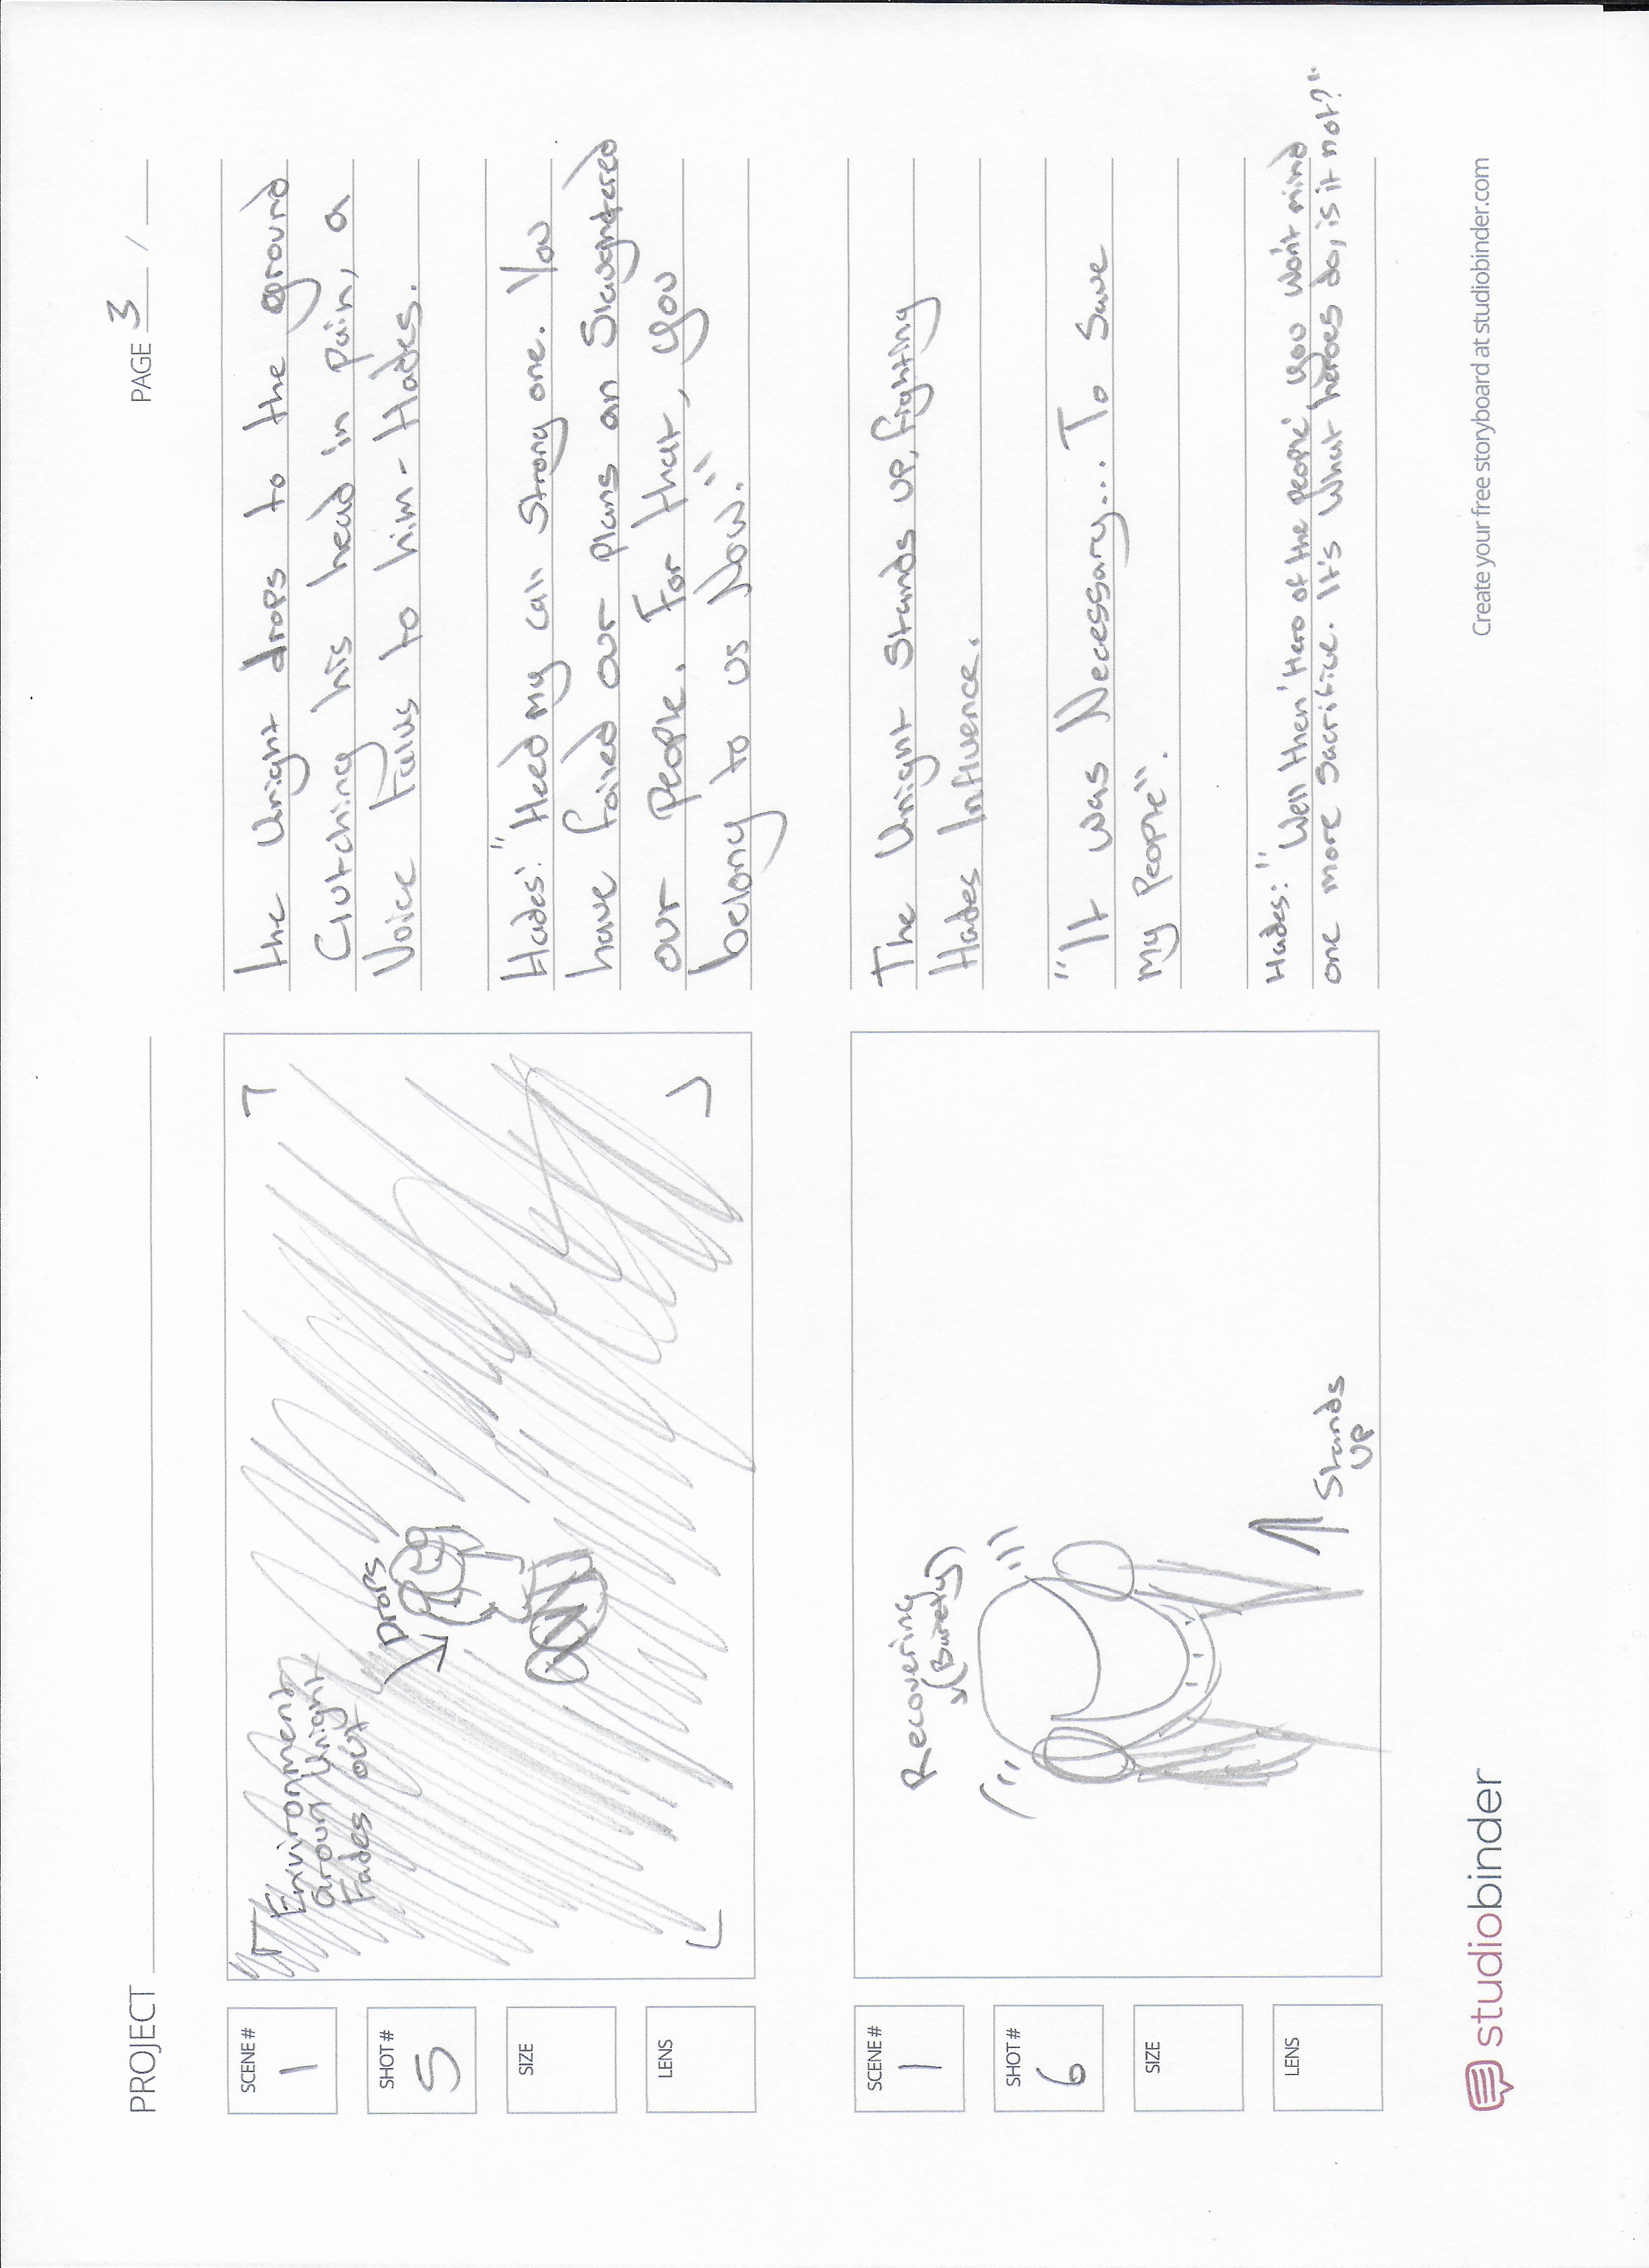 PROJECT
PAGE 3 /
SCENE #
1
SHOT #
5
SIZE
LENS
Environment
aroun Knight
Fades out
Drops
the Knight drops to the ground
Clutching his head in pain, a
Voice Talks to him - Hades.
Hades: "Heed my call strong one. You
have foiled our plans an Slaughtered
our people. For that, you
belong to us Now."
SCENE #
1
SHOT #
6
SIZE
LENS
Recovering
(Barely)
Stands
UP
The Knight Stands up, fighting
Hades Influence.
"It was Necessary... To Save
my People".
Hades: "Well then 'Hero of the people' you won't mind
one more Sacrifice. It's what heroes do, is it not?"
studiobinder
Create your free storyboard at studiobinder.com